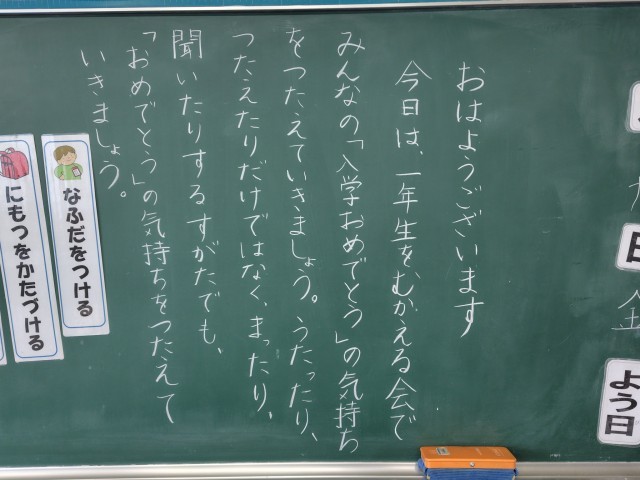 おはようございます
今日は、一年生をむかえる会で
みんなの「入学おめでとう」の気持ち
をつたえていきましょう。うたったり、
つたえたりだけではなく、まったり、
聞いたりするすがたでも、
「おめでとう」の気持ちをつたえて
いきましょう。
日
金
よう日
なふだをつける
にもつをかたづける